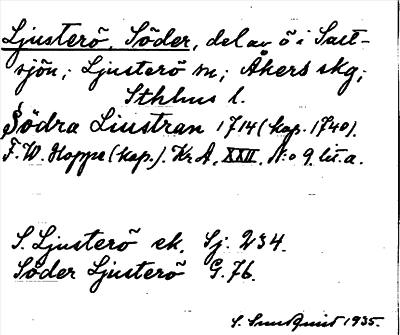 Ljusterö, Söder, del av ö i Salt-
sjön; Ljusterö sn; Åkers skg;
Sthlms l.
Södra Liustran 1714 (kop. 1740).
F. W. Hoppe (kop.). Kr A. XXII. N:o 9 lit. a.
S. Ljusterö ek. Sj. 234.
Söder Ljusterö G. 76.
S. Sundquist 1935.